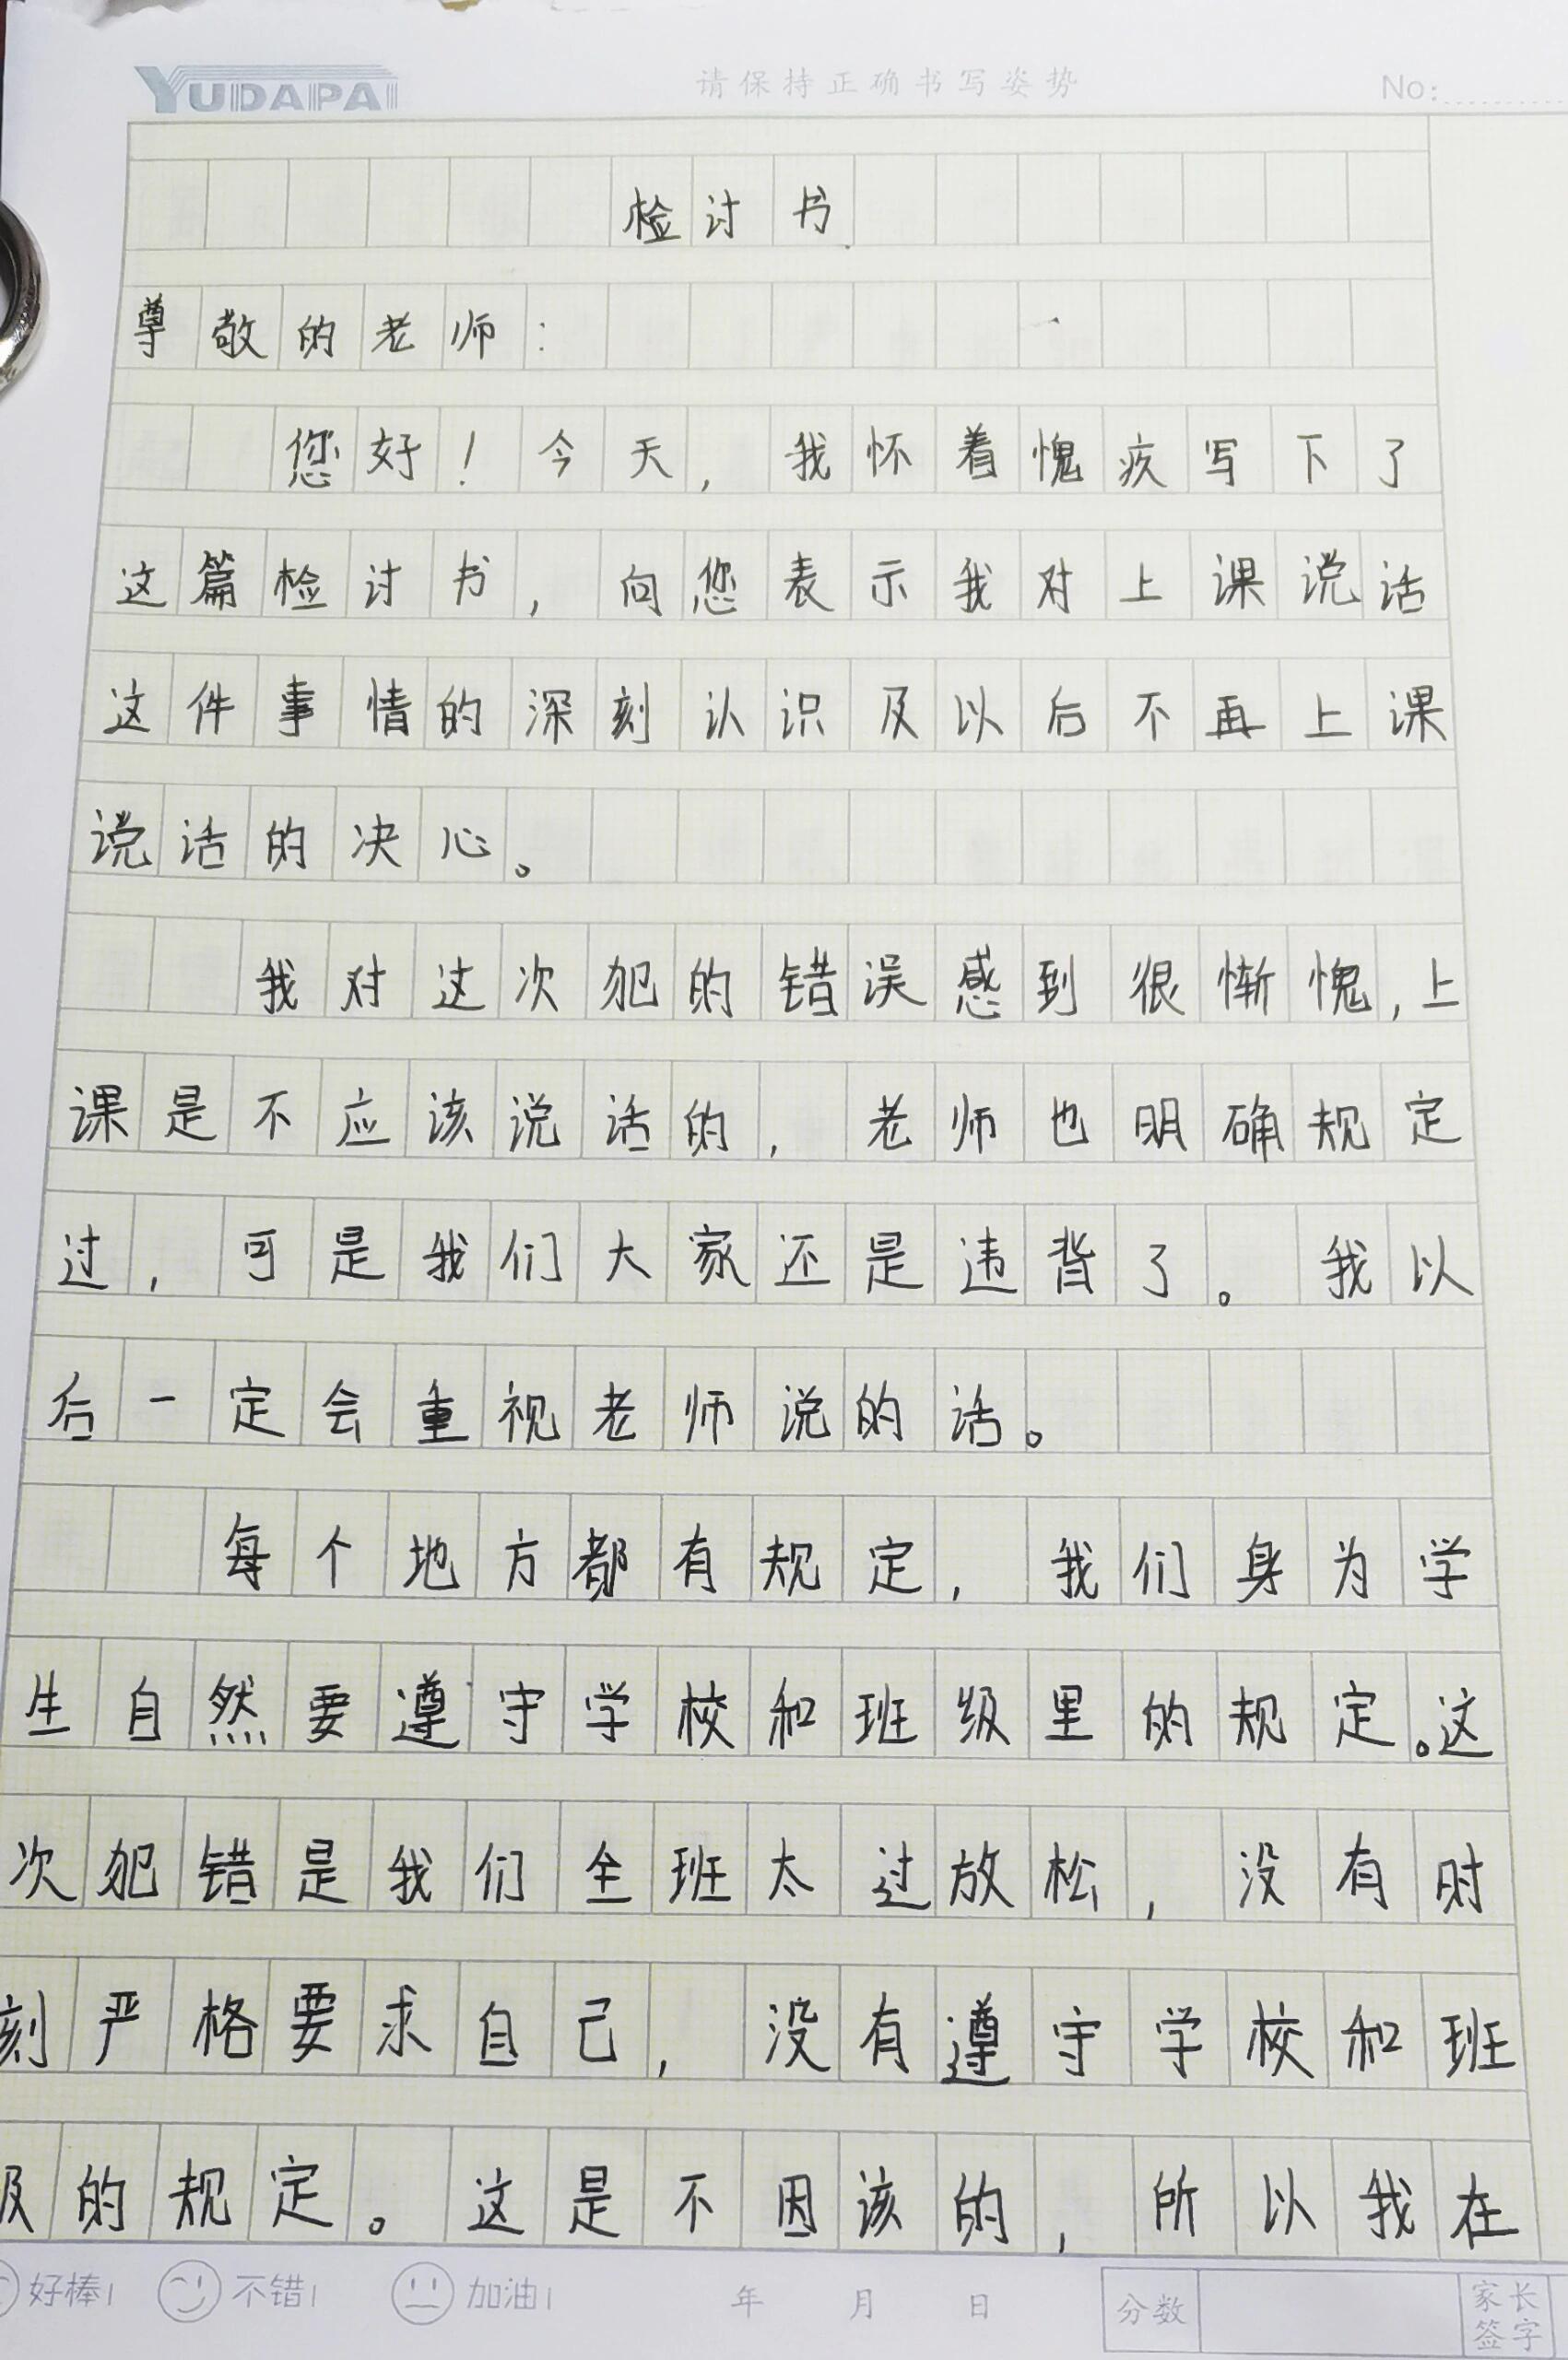 YUDAPAI 请保持正确书写姿势 No:
检讨书
尊敬的老师:
您好!今天,我怀着愧疚写下了
这篇检讨书,向您表示我对上课说话
这件事情的深刻认识及以后不再上课
说话的决心。
我对这次犯的错误感到很惭愧,上
课是不应该说话的,老师也明确规定
过,可是我们大家还是违背了。我以
后一定会重视老师说的话。
每个地方都有规定,我们身为学
生自然要遵守学校和班级里的规定。这
次犯错是我们全班太过放松,没有时
刻严格要求自己,没有遵守学校和班
级的规定。这是不因该的,所以我在
好棒! 不错! 加油! 年 月 日 分数 家长签字